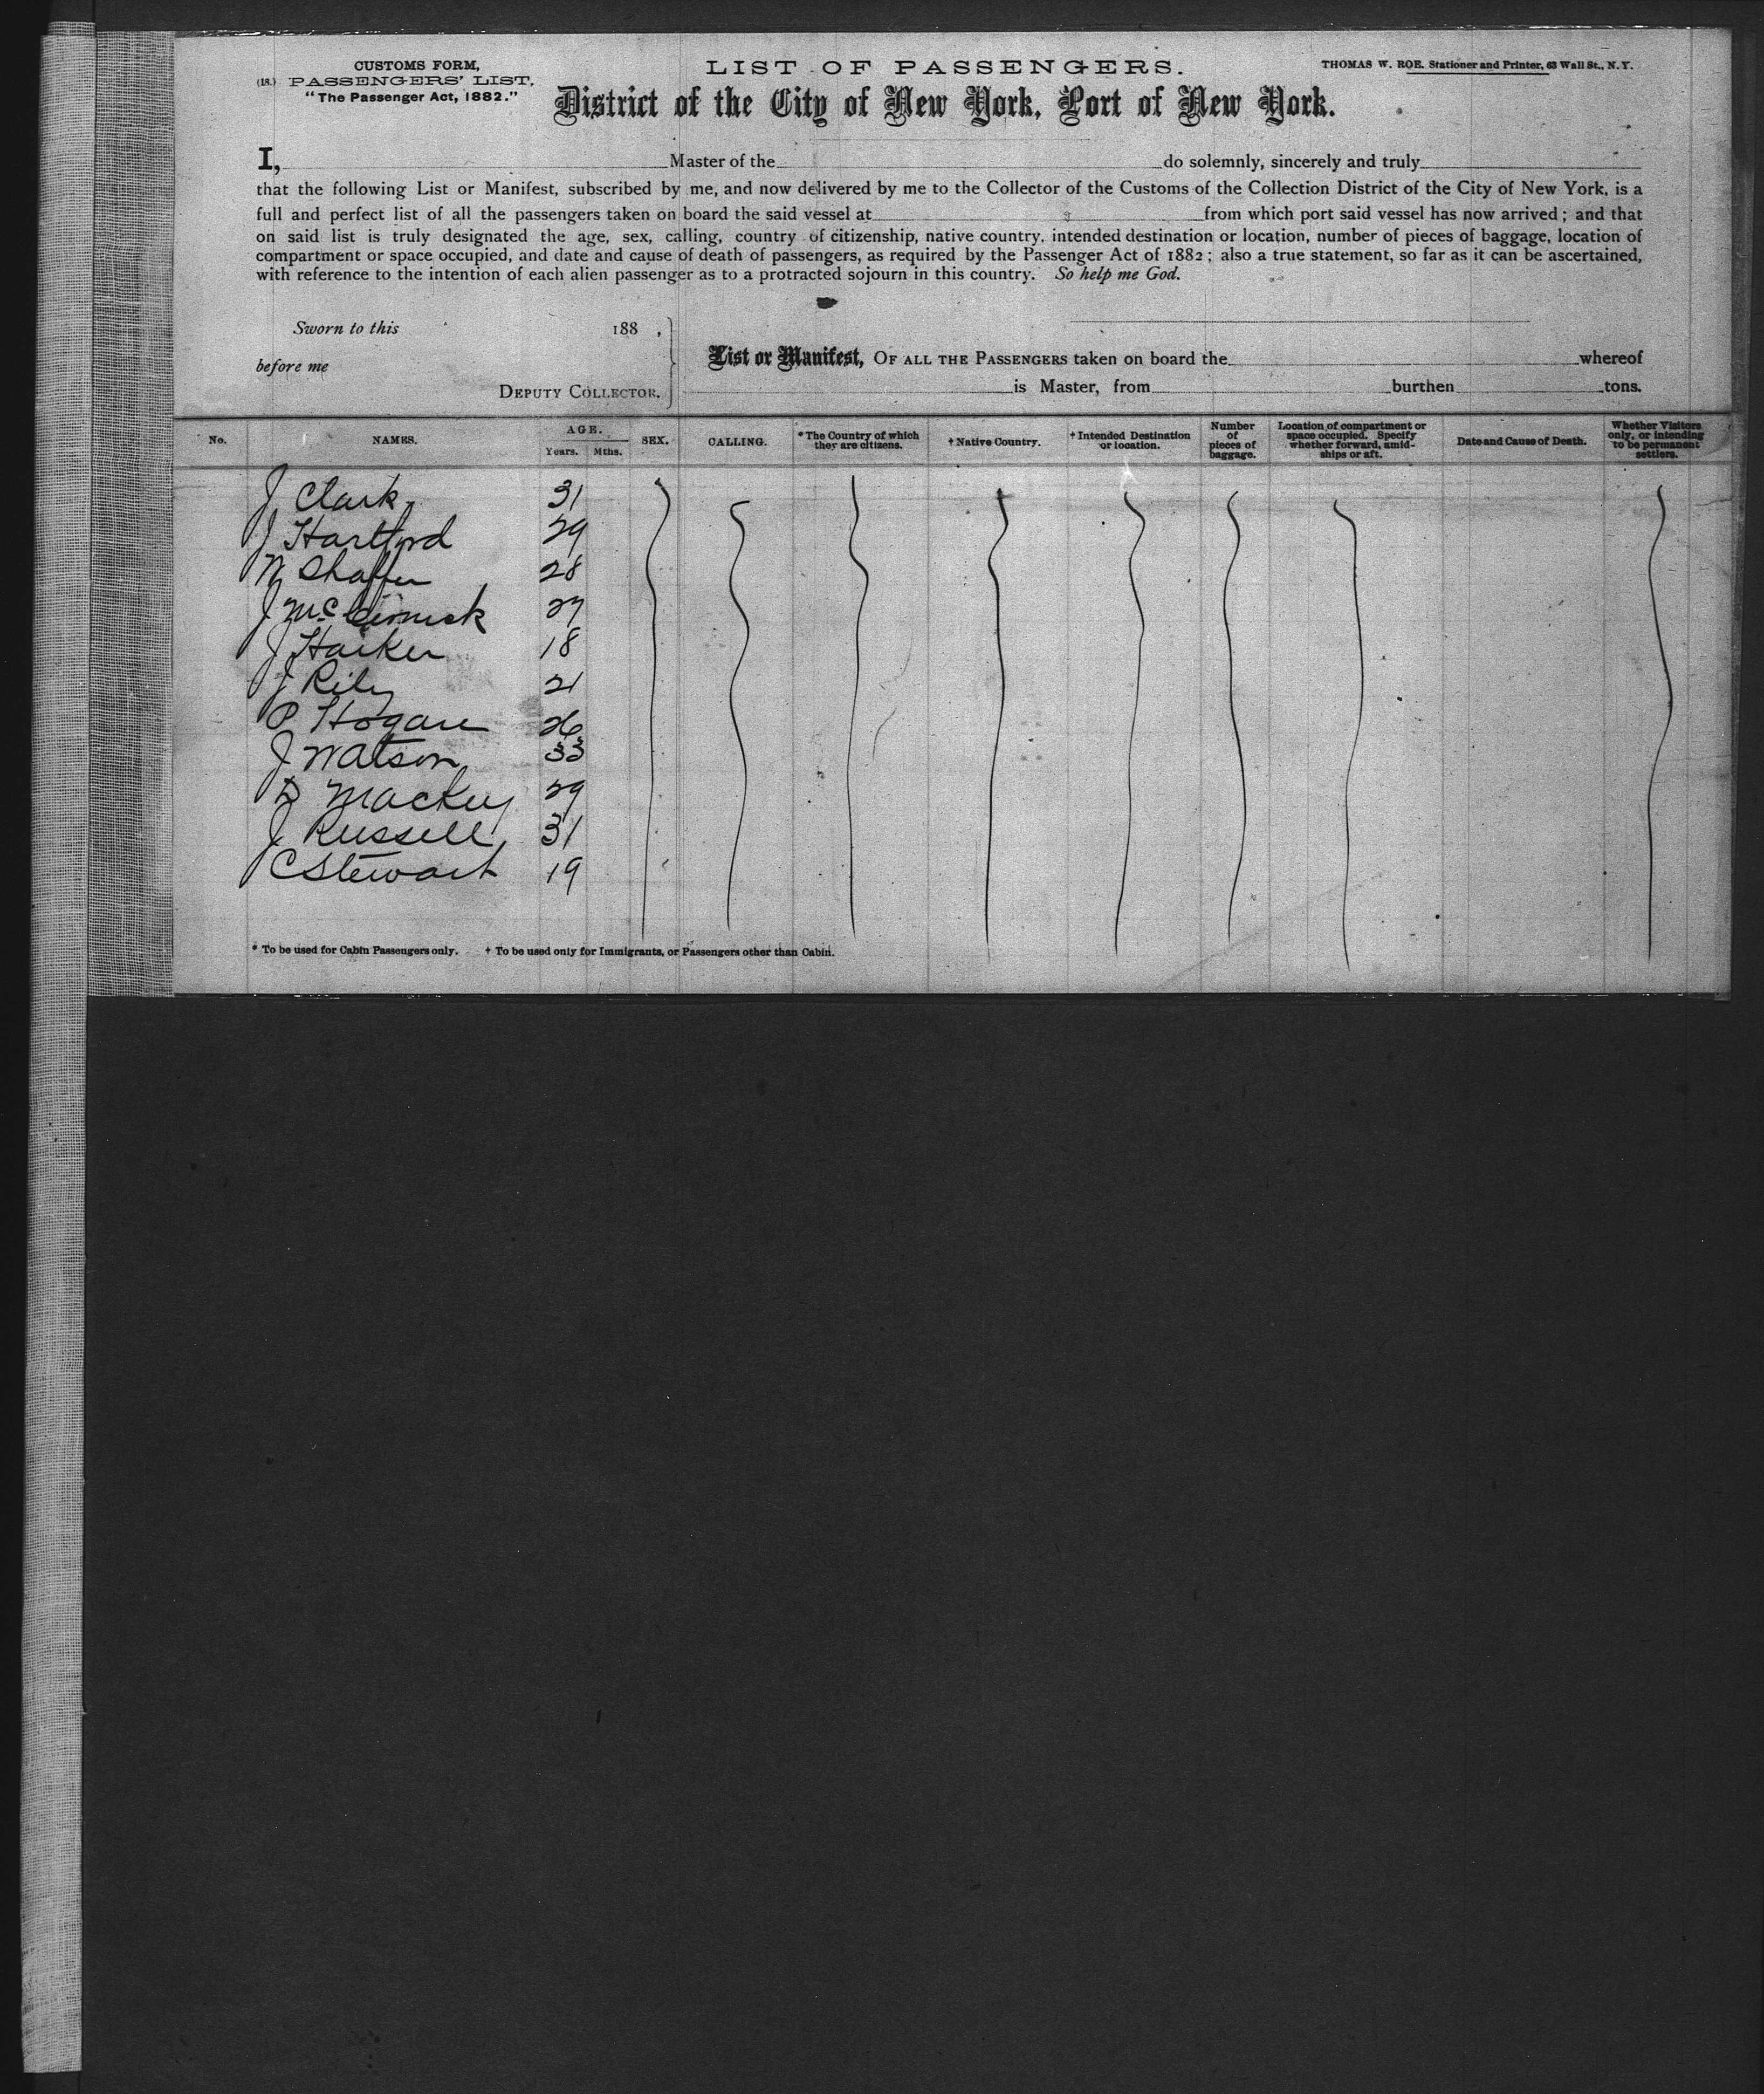 CUSTOMS FORM,
(18.) PASSENGERS' LIST,
"The Passenger Act, 1882."
LIST OF PASSENGERS.
THOMAS W. ROE. Stationer and Printer, 63 Wall St., N.Y.
District of the City of New York, Port of New York.
I, Master of the do solemnly, sincerely and truly
that the following List or Manifest, subscribed by me, and now delivered by me to the Collector of the Customs of the Collection District of the City of New York, is a
full and perfect list of all the passengers taken on board the said vessel at from which port said vessel has now arrived; and that
on said list is truly designated the age, sex, calling, country of citizenship, native country, intended destination or location, number of pieces of baggage, location of
compartment or space occupied, and date and cause of death of passengers, as required by the Passenger Act of 1882; also a true statement, so far as it can be ascertained,
with reference to the intention of each alien passenger as to a protracted sojourn in this country. So help me God.
Sworn to this 188 ,
before me
DEPUTY COLLECTOR.
List or Manifest, OF ALL THE PASSENGERS taken on board the whereof
is Master, from burthen tons.
No. NAMES. AGE. Years. Mths. SEX. CALLING. * The Country of which they are citizens. † Native Country. † Intended Destination or location. Number of pieces of baggage. Location of compartment or space occupied. Specify whether forward, amid-ships or aft. Date and Cause of Death. Whether Visitors only, or intending to be permanent settlers.
J Clark 31
J Hartford 29
W Shaffer 28
J McCormick 27
J Harker 18
J Rily 21
P Hogan 26
J Watson 33
D Mackey 29
J Russell 31
C Stewart 19
* To be used for Cabin Passengers only. † To be used only for Immigrants, or Passengers other than Cabin.